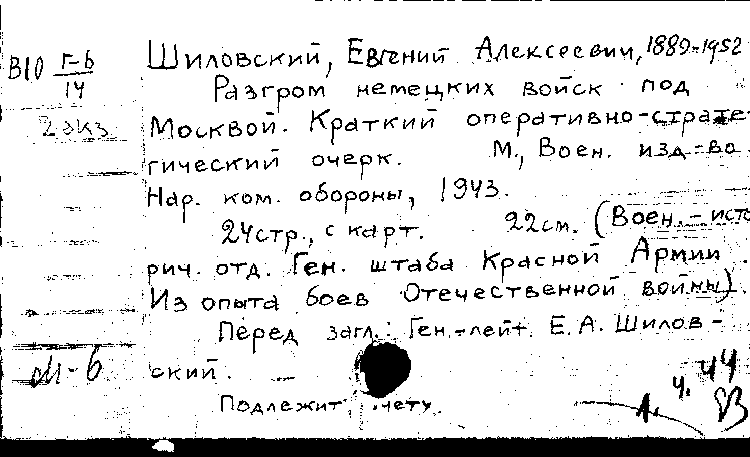 В10 Г-6/14
Шиловский, Евгений Алексеевич, 1889-1952
Разгром немецких войск под
2 экз
Москвой. Краткий оперативно-страте-
гический очерк. М., Воен. изд-во
Нар. ком. обороны, 1943.
24 стр., с карт. 22 см. (Воен.-исто
рич. отд. Ген. штаба Красной Армии.
Из опыта боев Отечественной войны).
Перед загл.: Ген.-лейт. Е.А. Шилов-
ский.
М-6
Подлежит